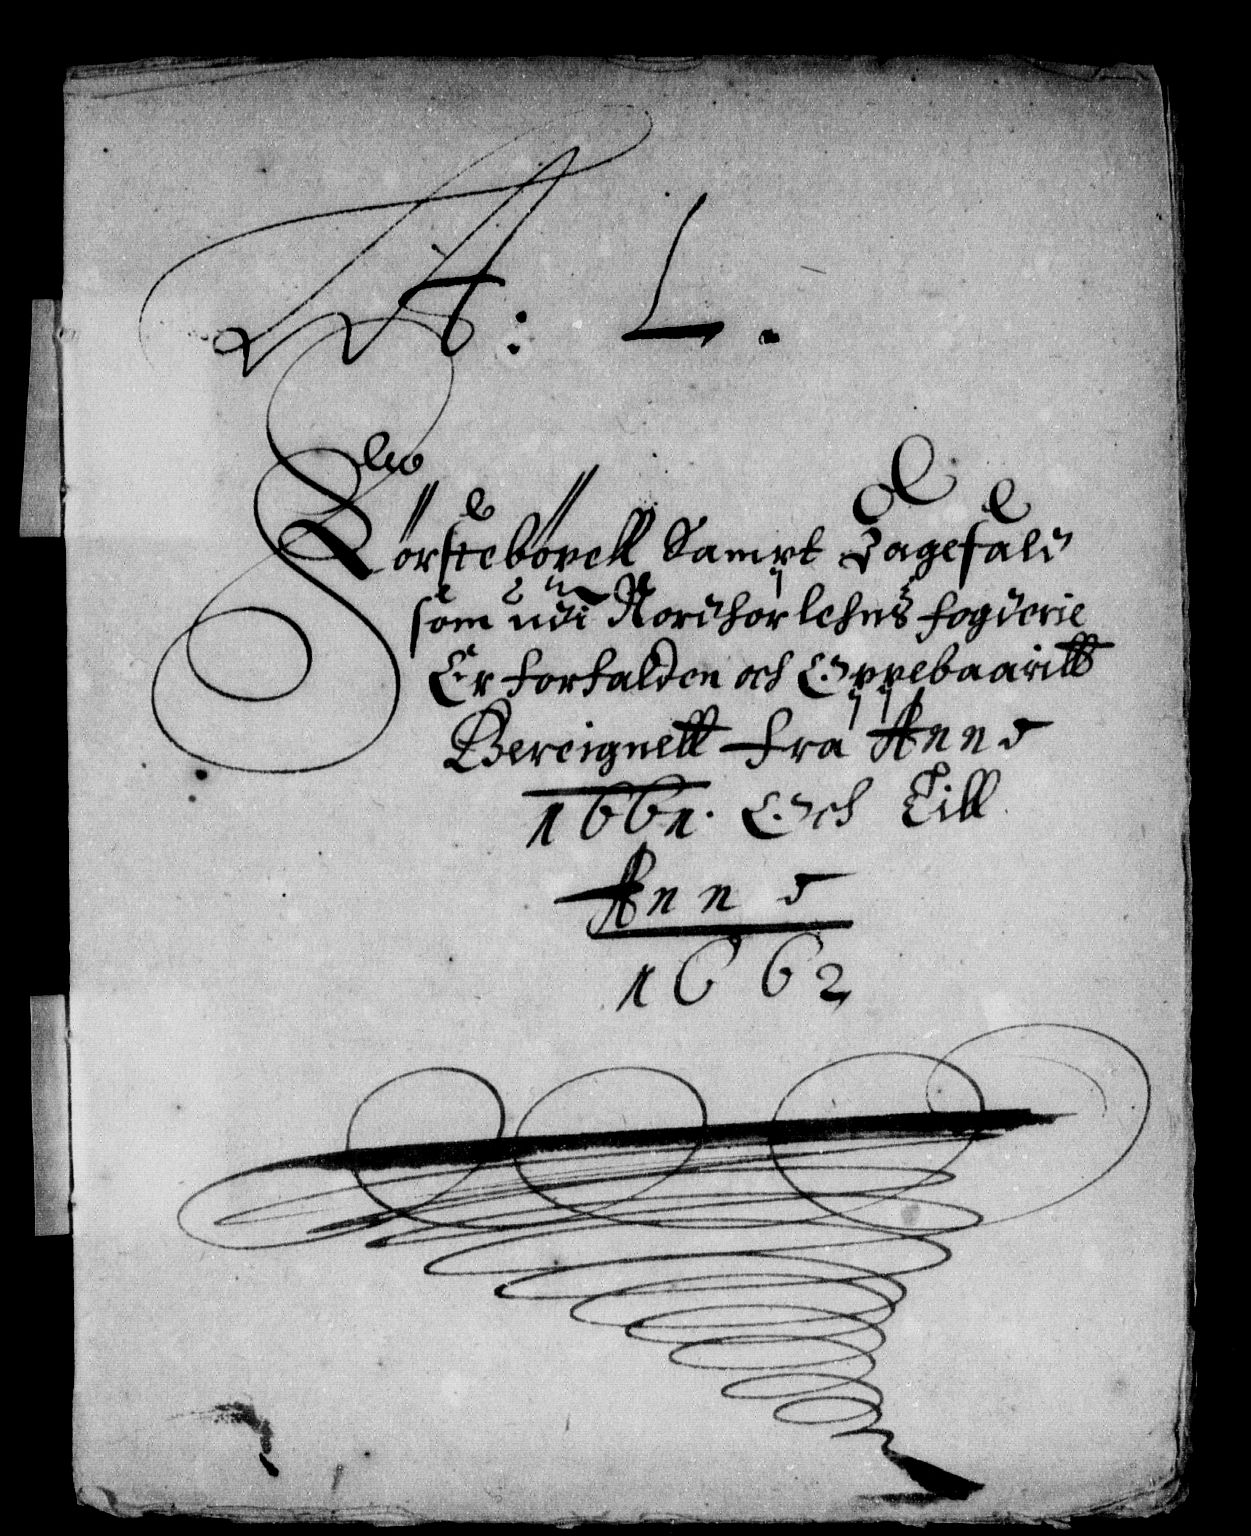 A: L.
Försteböxell Sampt Sagefald
som udi Nordhorlehns fogderie
Er forfalden och Oppebaaritt
Bereignett fra Anno
1661. Och Till
Anno
1662